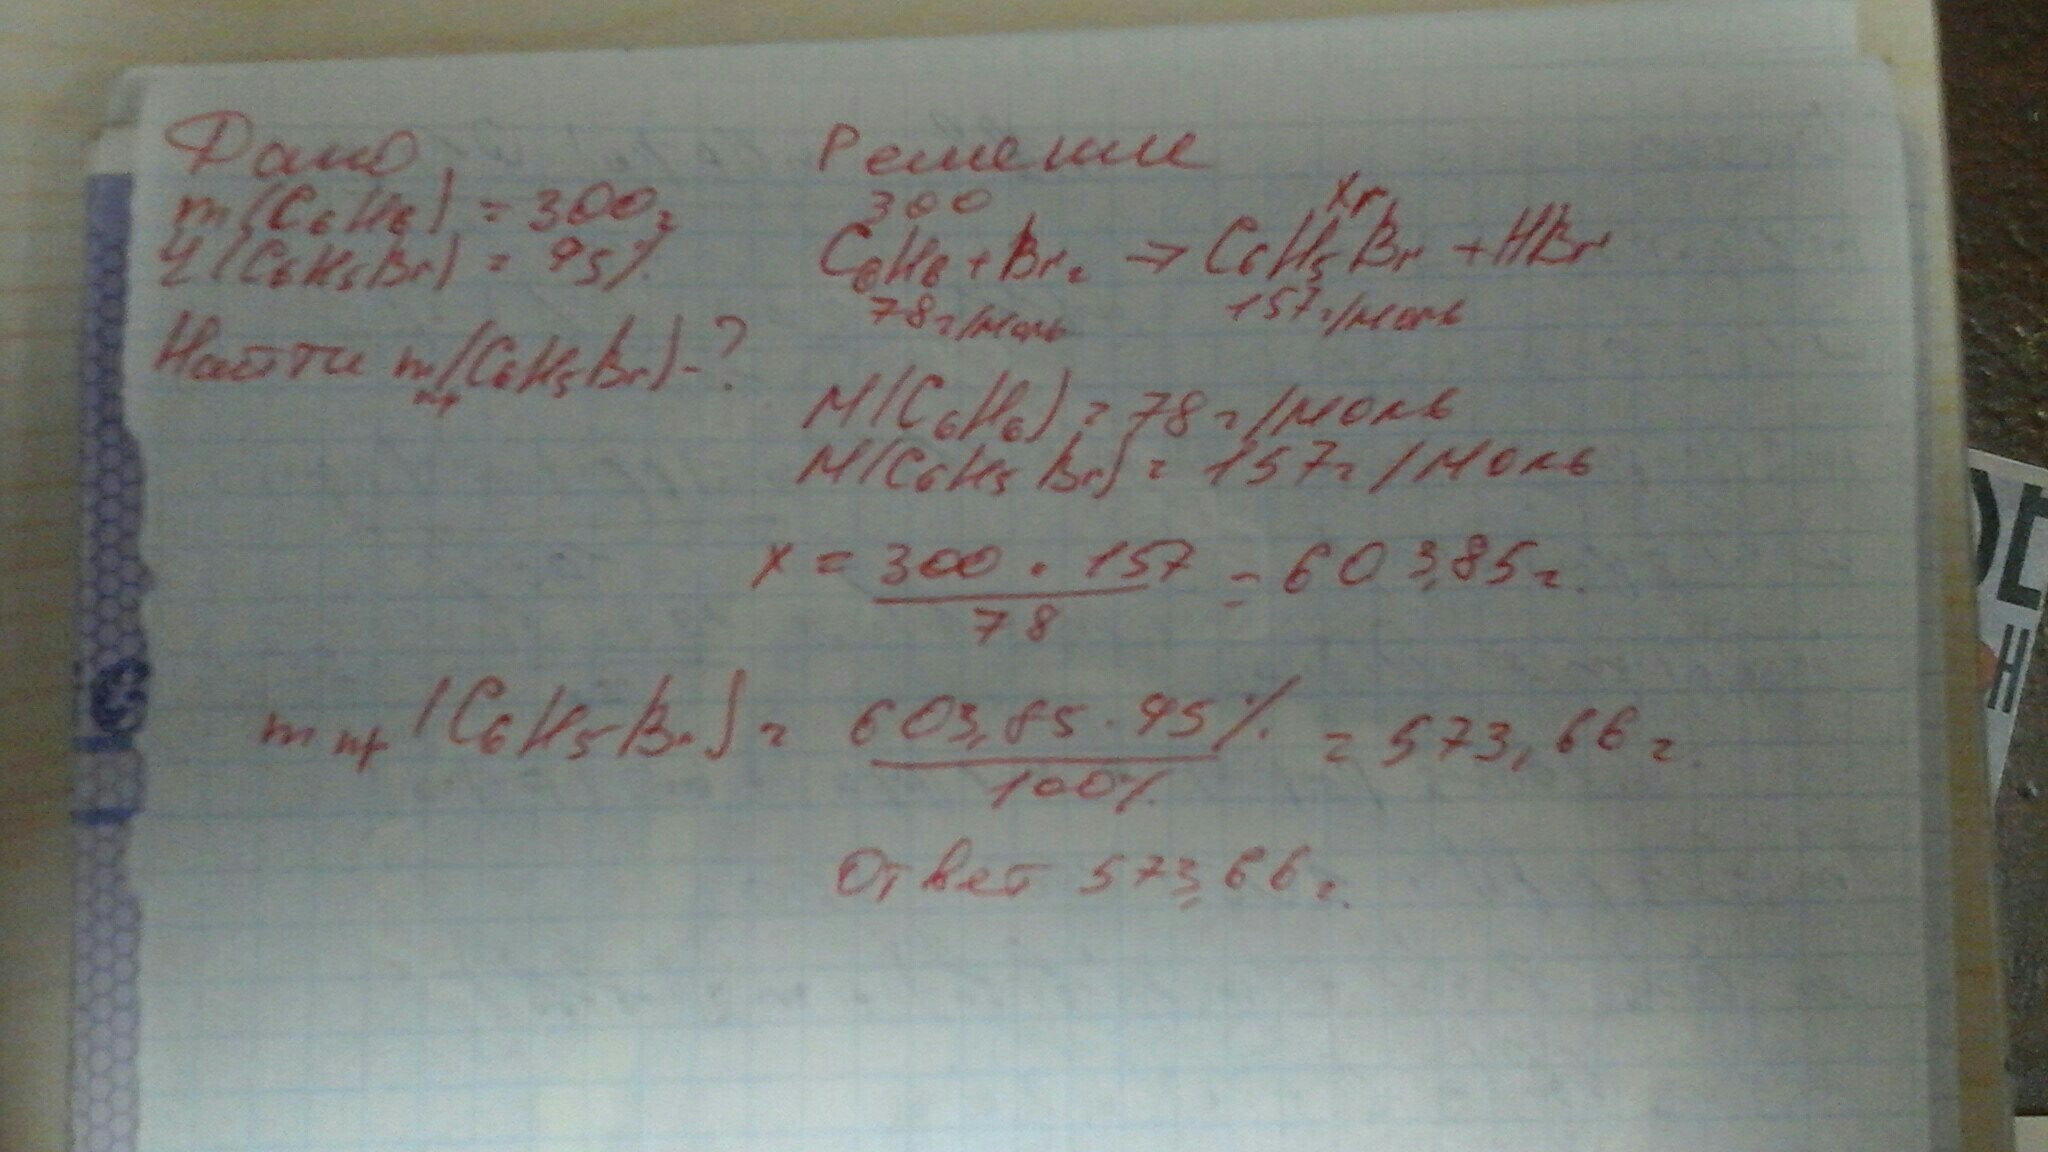 Дано
m(C6H6) = 300г
η(C6H5Br) = 95%
Найти mпр(C6H5Br)-?
Решение
300 Xг
C6H6 + Br2 → C6H5Br + HBr
78г/моль 157г/моль
M(C6H6) = 78г/моль
M(C6H5Br) = 157г/моль
x = 300 · 157 / 78 = 603,85г.
mпр(C6H5Br) = 603,85 · 95% / 100% = 573,66г.
Ответ 573,66г.